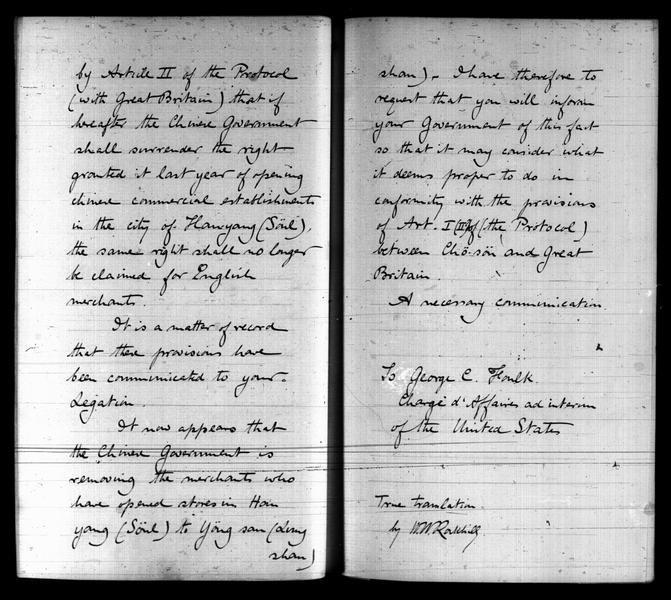 by Article II of the Protocol
(with Great Britain) that if
hereafter the Chinese Government
shall surrender the right
granted it last year of opening
chinese commercial establishments
in the city of Hanyang (Söul),
the same right shall no longer
be claimed for English
merchants.
It is a matter of record
that these provisions have
been communicated to your
Legation.
It now appears that
the Chinese Government is
removing the merchants who
have opened stores in Han
yang (Söul) to Yöng san (Lung
shan)
shan). I have therefore to
request that you will inform
your Government of this fact
so that it may consider what
it deems proper to do in
conformity with the provisions
of Art. I (II?) of (the Protocol)
between Chö-sön and Great
Britain.
A necessary communication
To George C. Foulk
Chargé d'Affaires ad interim
of the United States
True translation
by W.W. Rockhill